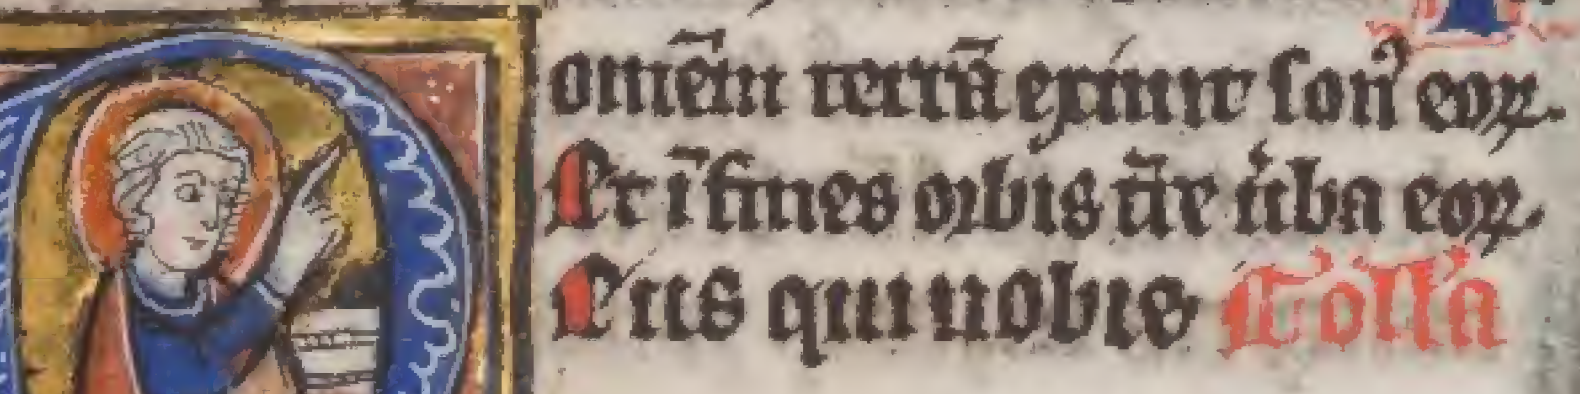 omēm terrā exiuit son᾽ eoꝝ.
Et ī fines orbis t̄re ūba eoꝝ.
Eus qui nobis Coll̄a